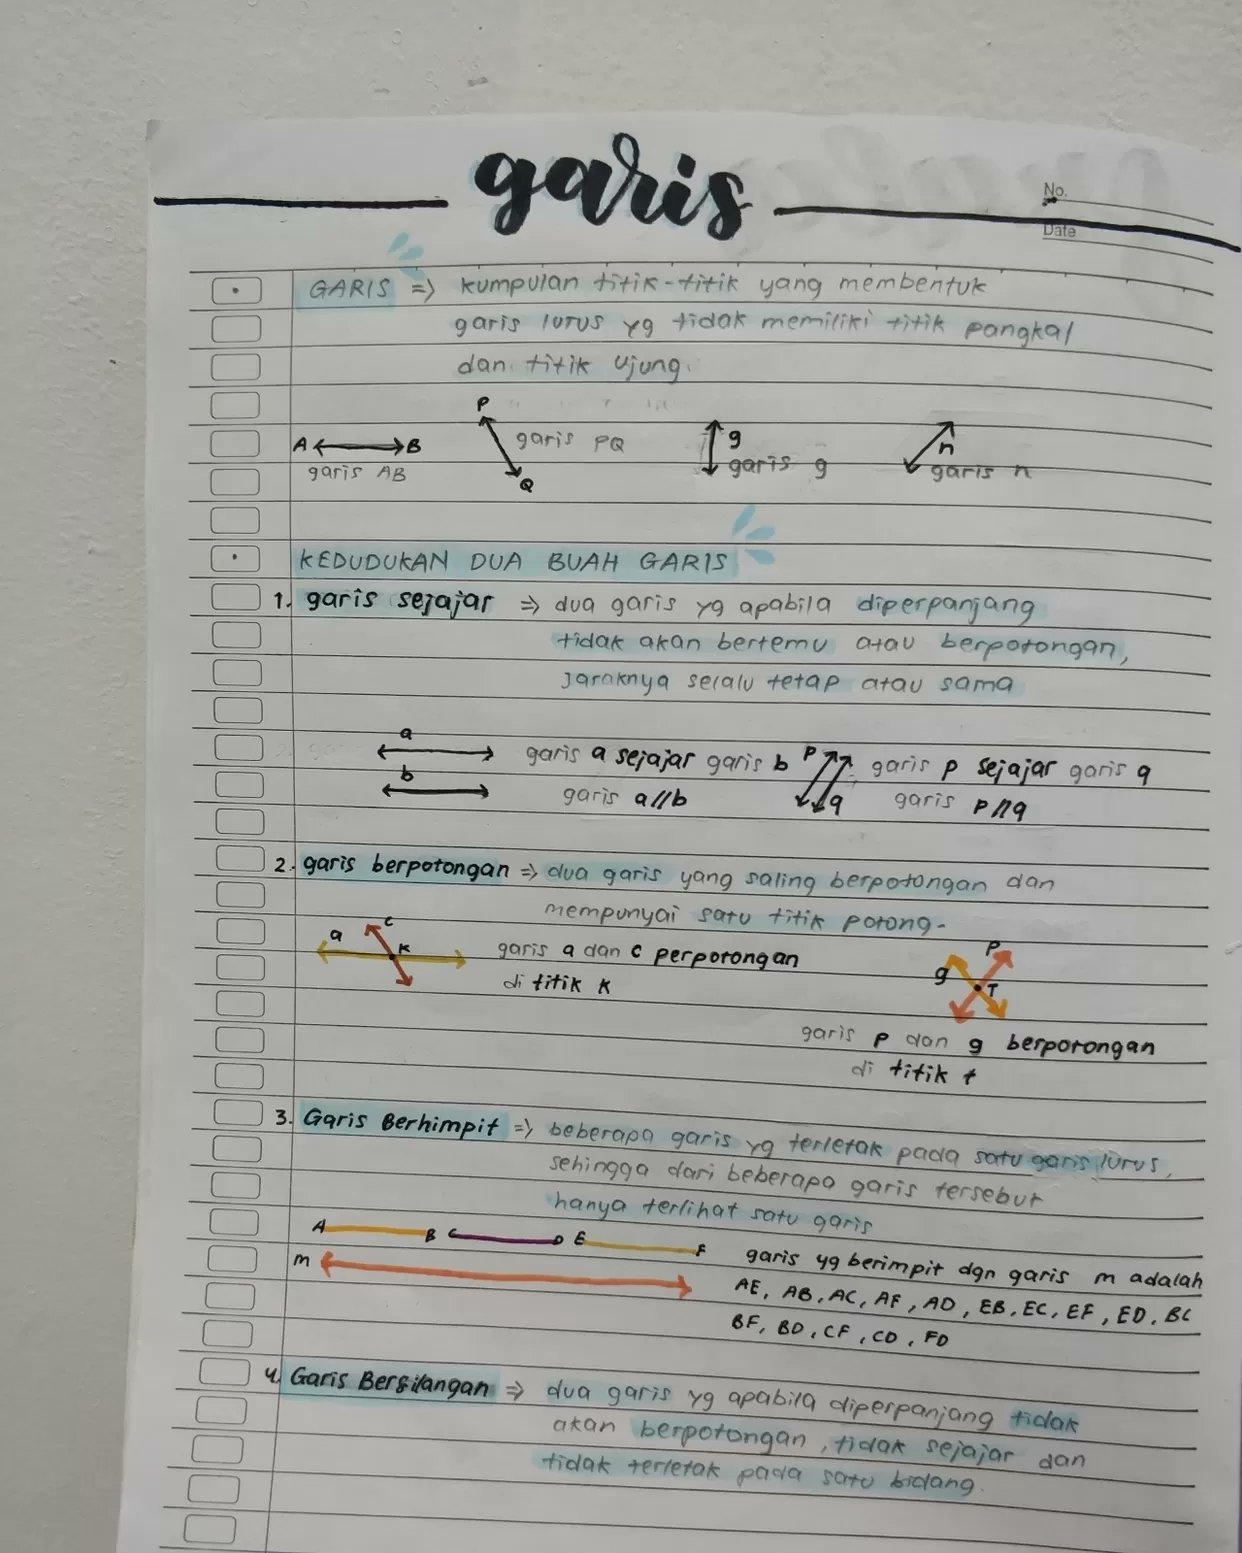 garis
No.
Date
GARIS => kumpulan titik-titik yang membentuk
garis lurus yg tidak memiliki titik pangkal
dan titik ujung.
A B
garis AB
P
garis PQ
Q
g
garis g
n
garis n
KEDUDUKAN DUA BUAH GARIS
1. garis sejajar => dua garis yg apabila diperpanjang
tidak akan bertemu atau berpotongan,
jaraknya selalu tetap atau sama
a
b
garis a sejajar garis b
garis a//b
p
q
garis p sejajar garis q
garis p//q
2. garis berpotongan => dua garis yang saling berpotongan dan
mempunyai satu titik potong.
a c K
garis a dan c perpotongan
di titik K
g P T
garis p dan g berpotongan
di titik t
3. Garis Berhimpit => beberapa garis yg terletak pada satu garis lurus,
sehingga dari beberapa garis tersebut
hanya terlihat satu garis
A B C D E F
m
garis yg berimpit dgn garis m adalah
AE, AB, AC, AF, AD, EB, EC, EF, ED, BC
BF, BD, CF, CD, FD
4. Garis Bersilangan => dua garis yg apabila diperpanjang tidak
akan berpotongan, tidak sejajar dan
tidak terletak pada satu bidang.